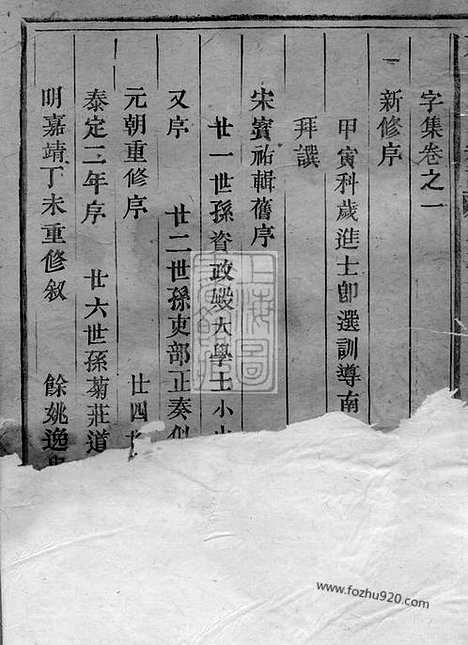 字集卷之一
新修序
甲寅科歲進士卽選訓導南
拜譔
宋寳祐輯舊序
廿一世孫資政殿大學士小
又序 廿二世孫吏部正奏
元朝重修序 廿四
泰定二年序 廿六世孫菊莊道
明嘉靖丁未重修叙 餘姚逸
上海圖
www.fozhu920.com